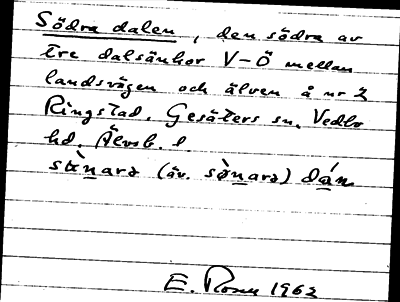 Södra dalen, den södra av
tre dalsänkor V-Ö mellan
landsvägen och älven å nr 2
Ringstad. Gesäters sn. Vedbo
hd. Älvsb. l.
(äv.
E. 1962